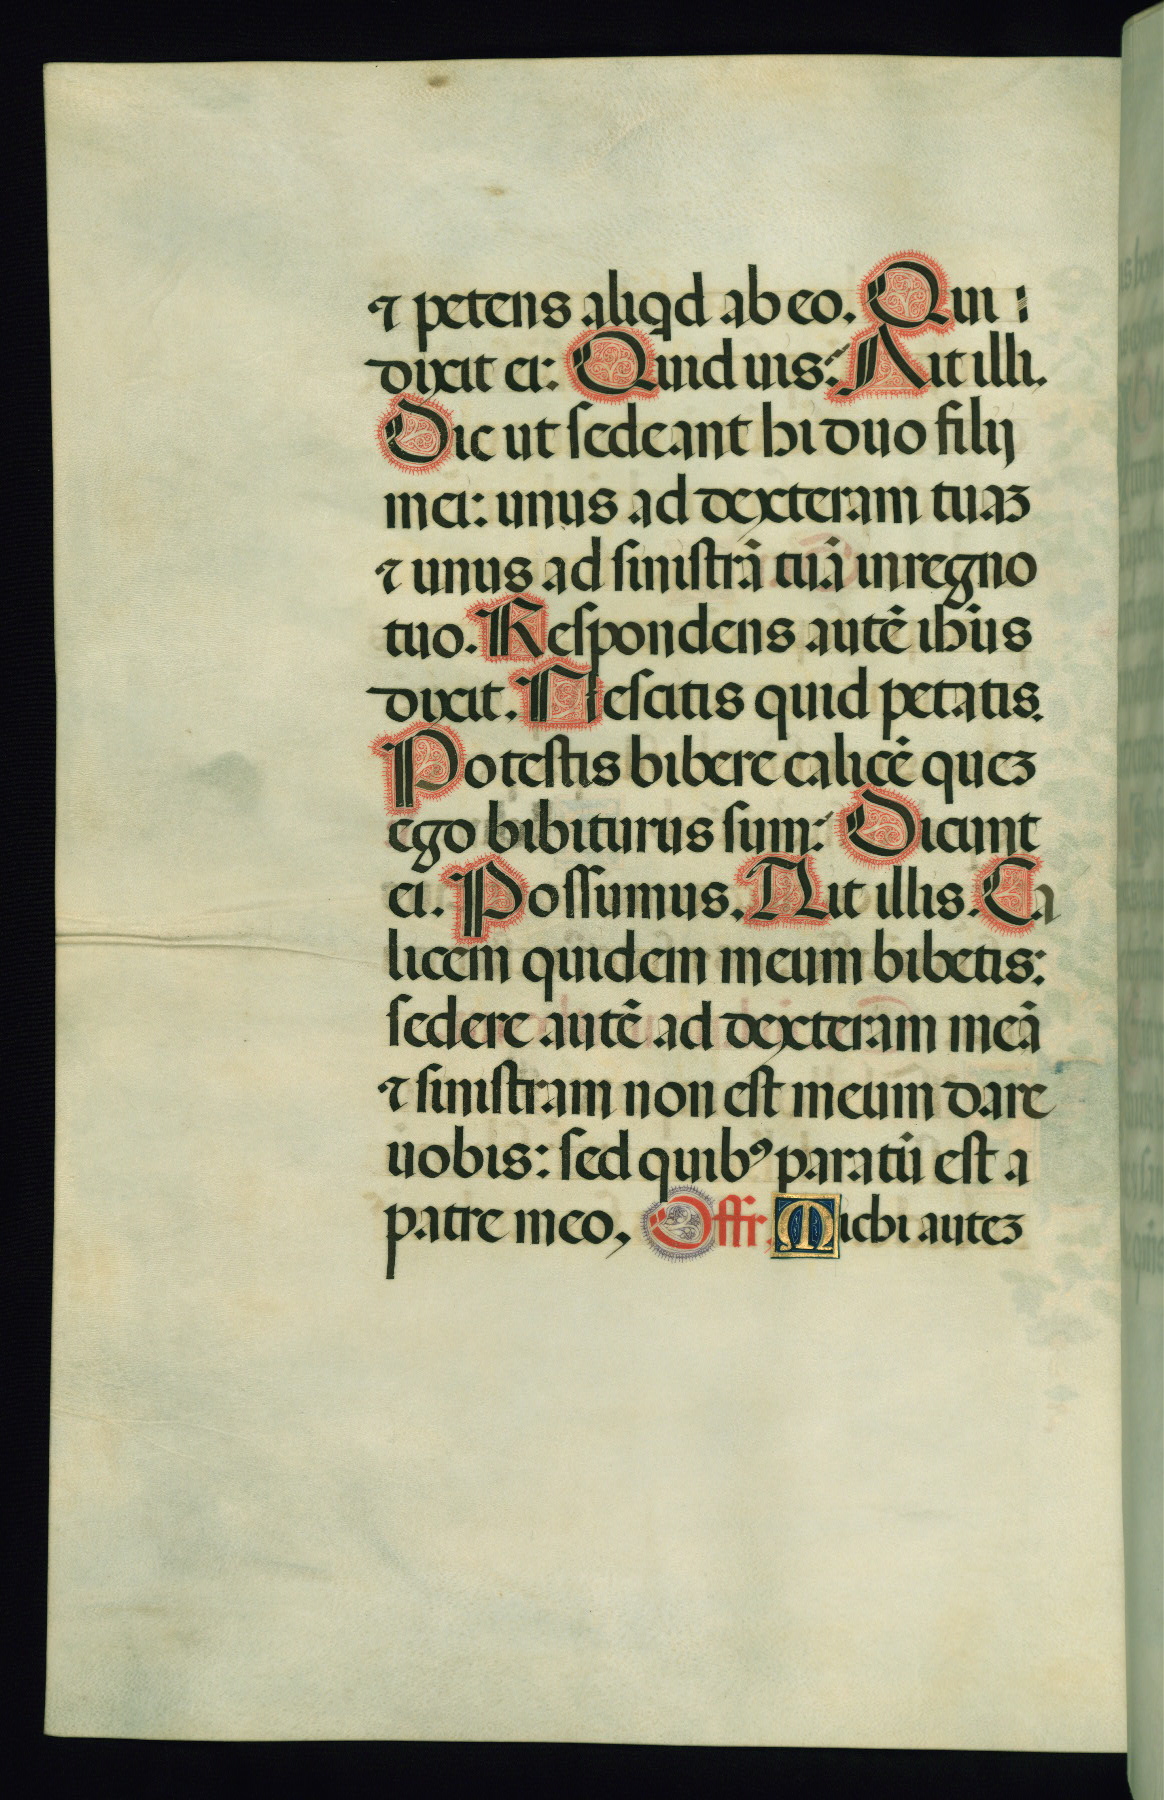 ⁊ petens aliqd ab eo. Qui
dixit ei: Quid uis: Ait illi.
Dic ut sedeant hi duo filij
mei: unus ad dexteram tuaꝫ
⁊ unus ad sinistrã tuã in regno
tuo. Respondens autẽ ihũs
dixit. Nescitis quid petatis.
Potestis bibere calicẽ queꝫ
ego bibiturus sum: Dicunt
ei. Possumus. Ait illis. Ca
licem quidem meum bibetis:
sedere autẽ ad dexteram meã
⁊ sinistram non est meum dare
uobis: sed quibꝰ paratũ est a
patre meo. Offr. Michi auteꝫ